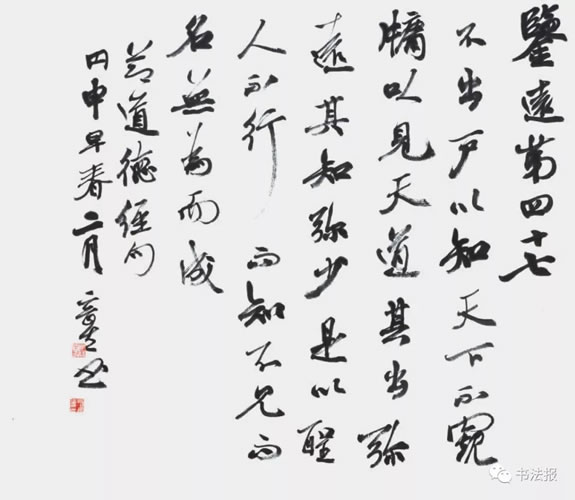 鑒遠第四十七
不出户以知天下不窺
牖以見天道其出弥
遠其知弥少是以聖
人不行而知不見而
名無為而成
節道德經句
丙申早春二月
书法报